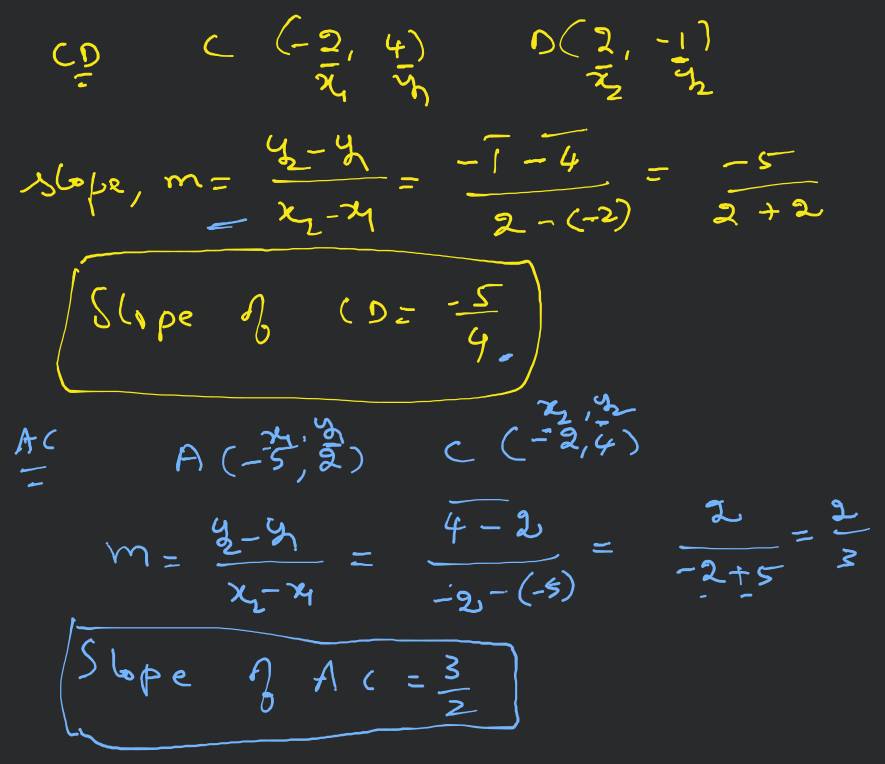 CD C (-2, 4) D(2, -1)
x₁ y₁ x₂ y₂
slope, m = y₂-y₁/x₂-x₁ = -1-4/2-(-2) = -5/2+2
Slope of CD = -5/4.
x₂, y₂
AC A (-5, 2) C (-2,4)
x₁, y₁
m = y₂-y₁/x₂-x₁ = 4-2/-2-(-5) = 2/-2+5 = 2/3
Slope of AC = 3/2